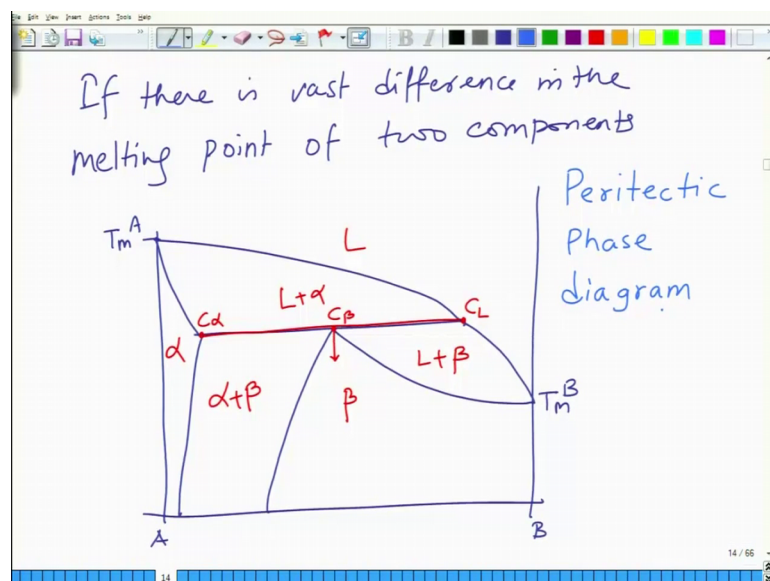 File Edit View Insert Actions Tools Help
B I
If there is vast difference in the
melting point of two components
Peritectic
Phase
diagram
Tm^A
L
L+α
Cα
Cβ
CL
α
L+β
α+β
β
Tm^B
A
B
14 / 66
14